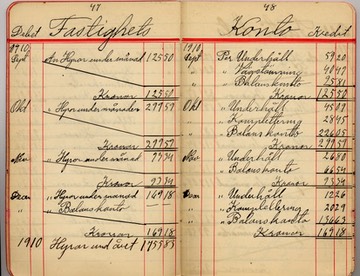 47
Debet Fastighets
1910
Sept An Hyror under månad 12550
Kronor 12550
Okt " Hyror under månaden 29757
Kronor 29757
Nov " Hyror under månad 9334
Kronor 9334
" Hyror under månad 16918
" Balanskonto
Kronor 16918
1910 Hyror und året
48
Konto Kredit
1910
Sept Per Underhåll 5920
"
" Balanskonto
Kronor 12550
Okt " Underhåll 4507
" Komplettering 2845
" Balanskonto 22605
Kronor 29757
Nov " Underhåll 2680
" Balanskonto 6654
Kronor 9334
" Underhåll 1226
" Komplettering 2029
" Balanskonto 13663
Kronor 16918